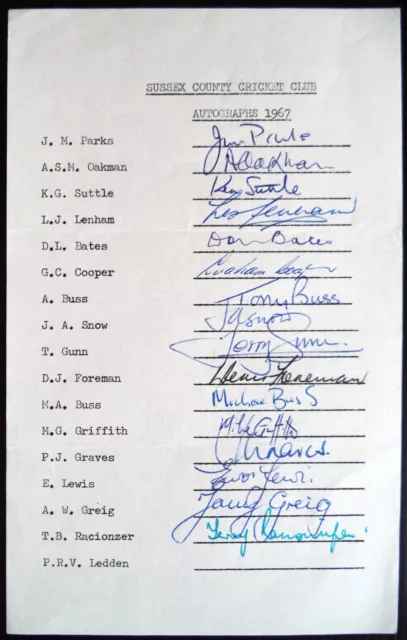 SUSSEX COUNTY CRICKET CLUB
AUTOGRAPHS 1967
J. M. Parks Jim Parks
A.S.M. Oakman A Oakman
K.G. Suttle Ken Suttle
L.J. Lenham Les Lenham
D.L. Bates Don Bates
G.C. Cooper Graham Cooper
A. Buss Tony Buss
J. A. Snow J A Snow
T. Gunn Terry Gunn.
D.J. Foreman Denis Foreman
M.A. Buss Michael Buss
M.G. Griffith Mike Griffith
P.J. Graves P J Graves.
E. Lewis Euros Lewis.
A. W. Greig Tony Greig
T.B. Racionzer Terry Racionzer.
P.R.V. Ledden